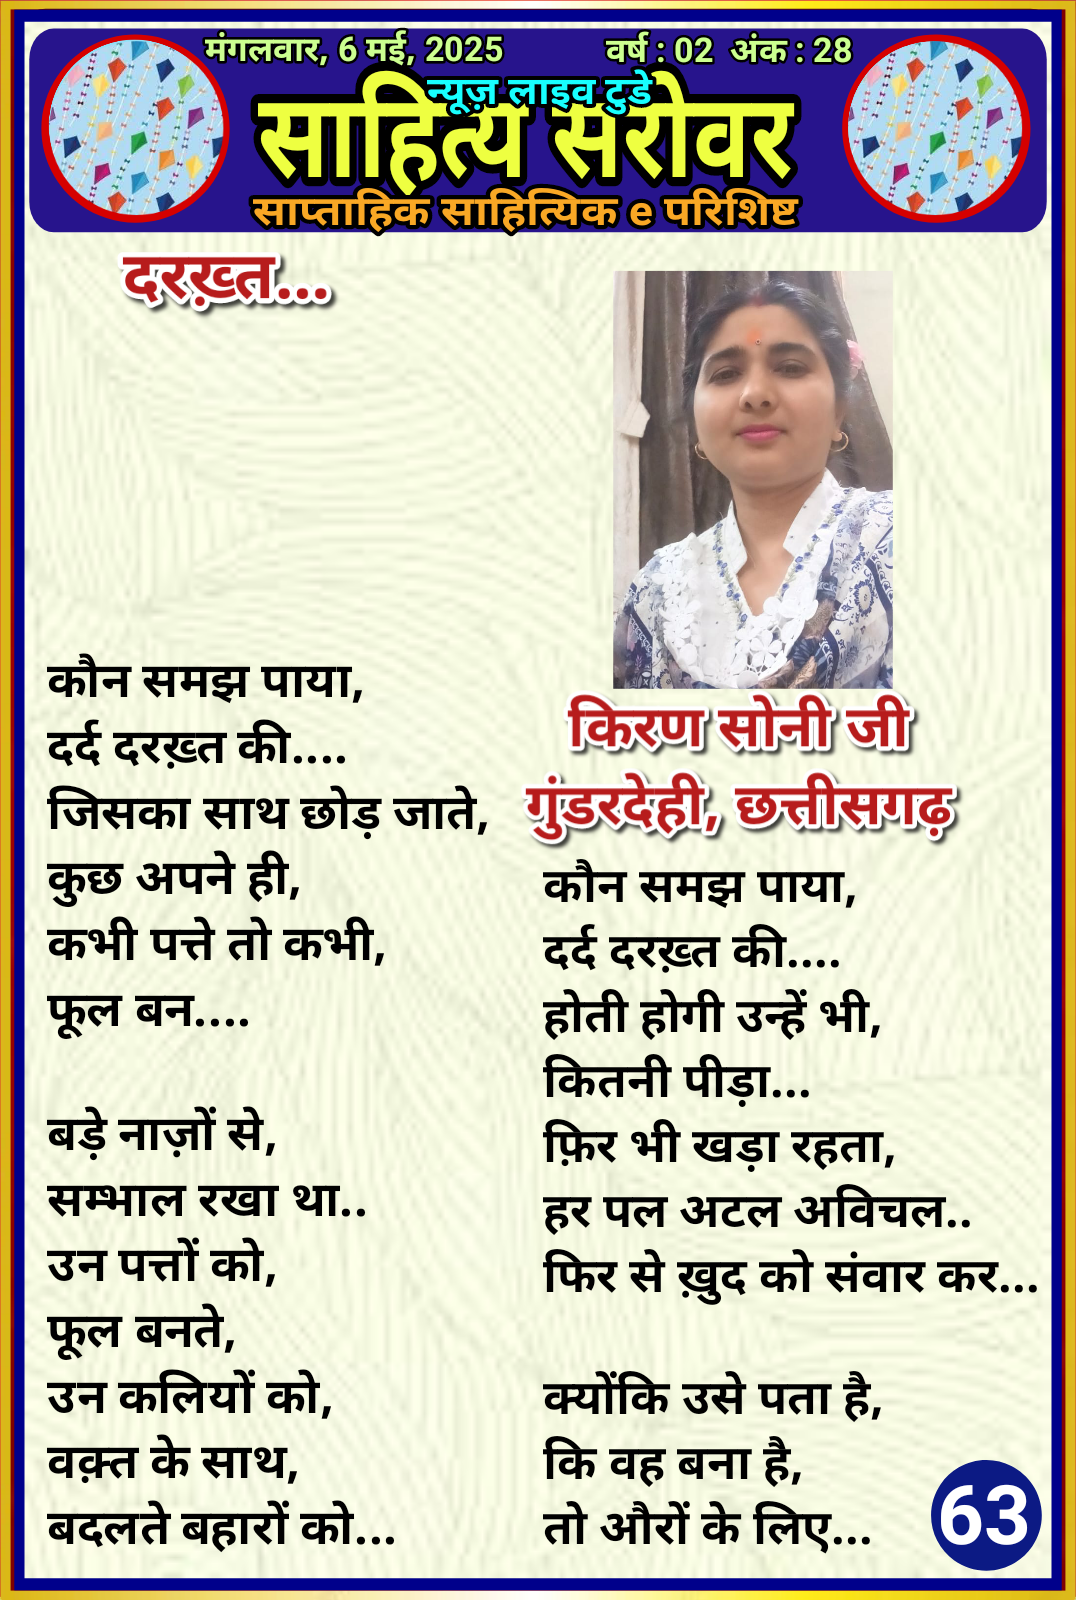 मंगलवार, 6 मई, 2025
वर्ष : 02 अंक : 28
न्यूज़ लाइव टुडे
साहित्य सरोवर
साप्ताहिक साहित्यिक e परिशिष्ट
दरख़्त...
कौन समझ पाया,
दर्द दरख़्त की....
जिसका साथ छोड़ जाते,
कुछ अपने ही,
कभी पत्ते तो कभी,
फूल बन....
बड़े नाज़ों से,
सम्भाल रखा था..
उन पत्तों को,
फूल बनते,
उन कलियों को,
वक़्त के साथ,
बदलते बहारों को...
किरण सोनी जी
गुंडरदेही, छत्तीसगढ़
कौन समझ पाया,
दर्द दरख़्त की....
होती होगी उन्हें भी,
कितनी पीड़ा...
फ़िर भी खड़ा रहता,
हर पल अटल अविचल..
फिर से ख़ुद को संवार कर...
क्योंकि उसे पता है,
कि वह बना है,
तो औरों के लिए...
63